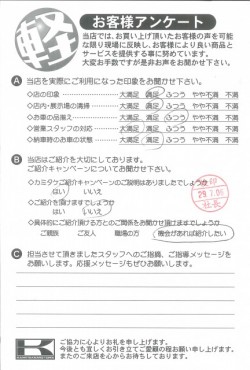 軽
お客様アンケート
当店では、お買い上げ頂いたお客様の声を可能
な限り現場に反映し、お客様により良い商品と
サービスを提供する事に努めています。
大変お手数ですが是非お声をお聞かせ下さい。
A 当店を実際にご利用になった印象をお聞かせ下さい。
◇店の印象 大満足 満足 ふつう やや不満 不満
◇店内・展示場の清掃 大満足 満足 ふつう やや不満 不満
◇お車の品揃え 大満足 満足 ふつう やや不満 不満
◇営業スタッフの対応 大満足 満足 ふつう やや不満 不満
◇納車時のお車の状態 大満足 満足 ふつう やや不満 不満
B 当店はご紹介を大切にしております。
ご紹介キャンペーンについてお聞かせ下さい。
◇カミタケご紹介キャンペーンのご説明はありましたでしょうか
はい いいえ
◇ご紹介を頂けますでしょうか
はい いいえ
◇具体的にご紹介頂ける方とのご関係をお聞かせ頂けますでしょうか
ご親族 ご友人 職場の方 機会があれば紹介したい
社長
C 担当させて頂きましたスタッフへのご指摘、ご指導メッセージを
お願いします。応援メッセージもぜひお願いします。
K
ご協力に心よりお礼を申し上げます。
今後とも宜しくお引き立てご愛顧の程お願い申し上げます。
またのご来店を心からお待ちしております。